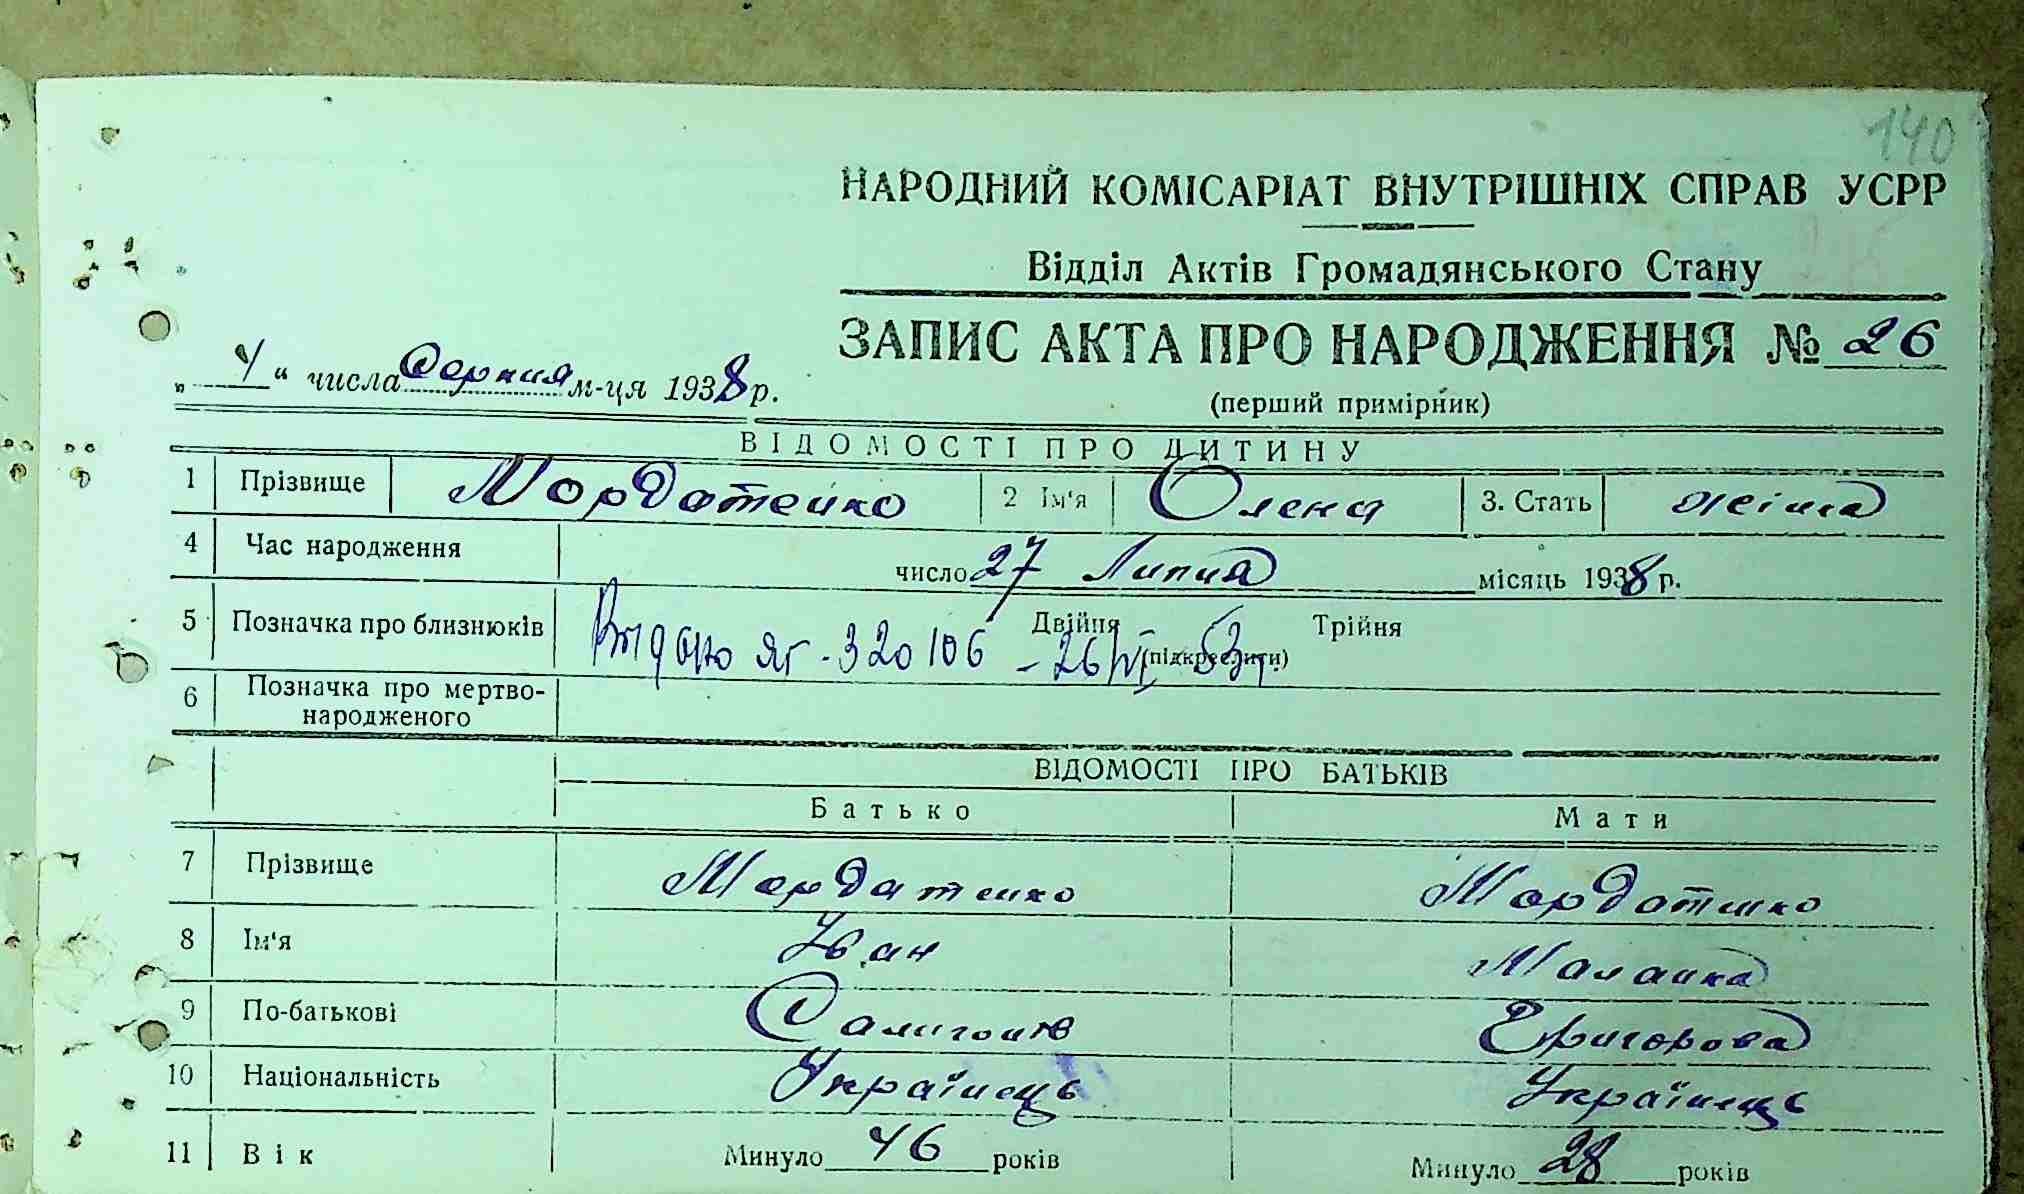 140
НАРОДНИЙ КОМІСАРІАТ ВНУТРІШНІХ СПРАВ УСРР
Відділ Актів Громадянського Стану
ЗАПИС АКТА ПРО НАРОДЖЕННЯ № 26
„4“ числа Серпня м-ця 1938 р.
(перший примірник)
ВІДОМОСТІ ПРО ДИТИНУ
1 Прізвище Мордатенко 2 Ім'я Олена 3. Стать жіноча
4 Час народження число 27 Липня місяць 1938 р.
5 Позначка про близнюків Двійня Трійня
(підкреслити)
Видано ЯГ - 320106 - 26/VI - 53 г.
6 Позначка про мертво-
народженого
ВІДОМОСТІ ПРО БАТЬКІВ
Батько Мати
7 Прізвище Мордатенко Мордатенко
8 Ім'я Іван Маланка
9 По-батькові Григорова
10 Національність Українець Українець
11 Вік Минуло 46 років Минуло 28 років